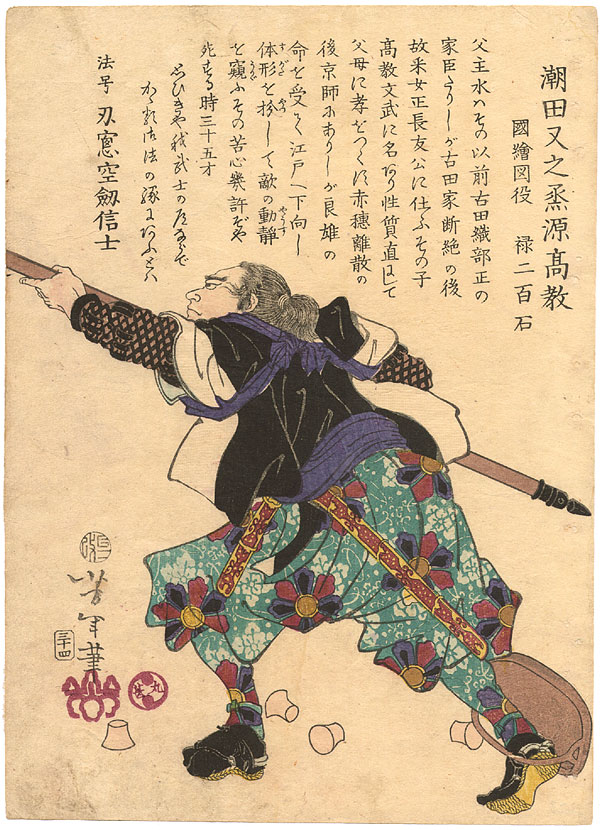 潮田又之烝源高教
國繪図役 禄二百石
父主水ハその以前古田織部正の
家臣たりしが古田家断絶の後
故采女正長友公に仕ふその子
高教文武に名あり性質直にして
父母に孝をつくす赤穂離散の
後京師にありしが良雄の
命を受て江戸へ下向し
体形を扮して敵の動静
を窺ふその苦心幾許ぞや
死する時三十五才
武士の
法の
法号 刃窓空劔信士
芳年筆
三十四
丸